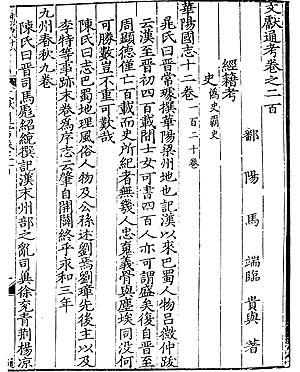 文獻通考卷之二百
鄱陽馬端臨貴與著
經籍考
史 偽史霸史
華陽國志十二卷 一百二十卷
晁氏曰晉常璩撰華陽梁州地也記漢以來巴蜀人物呂微仲跋
云漢至晉初四百載間士女可書四百人亦可謂盛矣復自晉至
周顯德僅七百載而史所紀者無幾人忠魂義骨與塵埃同沒何
可勝數豈不重可歎哉
陳氏曰志巴蜀地理風俗人物及公孫述劉焉劉璋先後主以及
李特等事跡末卷為序志云肇自開闢終乎永和三年
九州春秋九卷
陳氏曰晉司馬彪紹統撰記漢末州部之亂司冀徐兗青荊楊涼